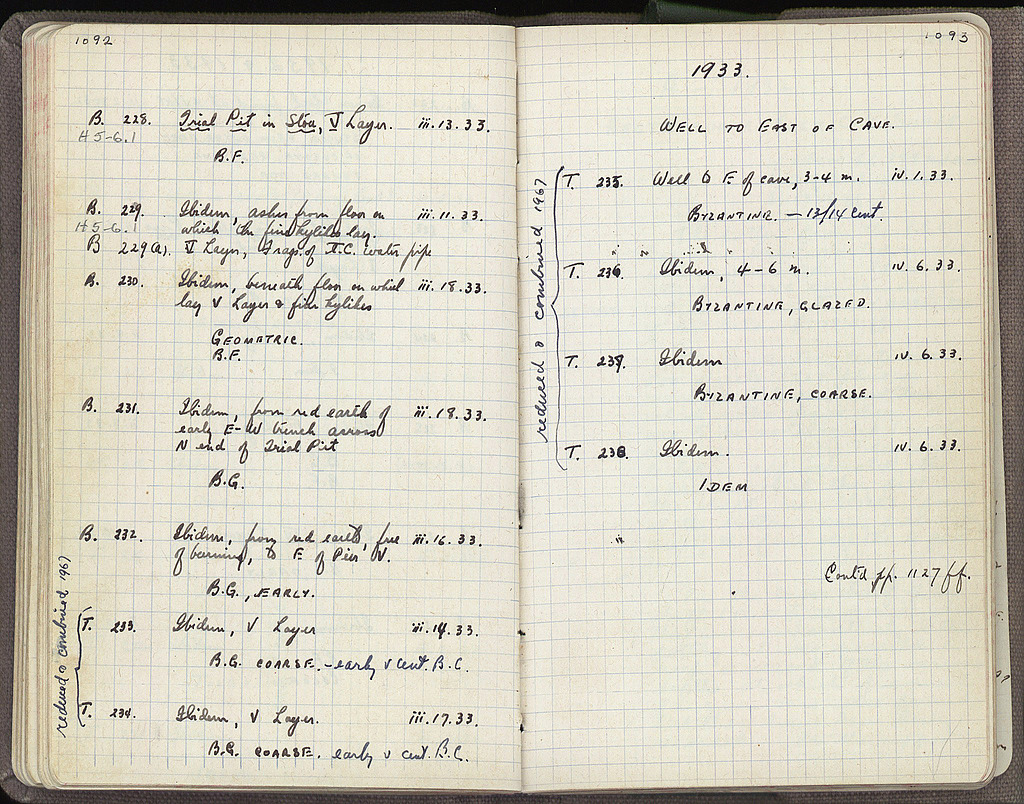 1092
B. 228. Trial Pit in Stoa, V Layer. iii.13.33.
H 5-6.1
B.F.
B. 229. Ibidem, ashes from floor on iii.11.33.
H 5-6.1 which the fine kylikes lay.
B 229(a). V Layer, Frags. of T.C. water pipe
B. 230. Ibidem, beneath floor on which iii.18.33.
lay V Layer & fine kylikes
GEOMETRIC.
B.F.
B. 231. Ibidem, from red earth of iii.18.33.
early E-W trench across
N end of Trial Pit
B.G.
B. 232. Ibidem, from red earth, free iii.16.33.
of burning, to E of Pier V.
B.G., EARLY.
reduced & combined 1967
T. 233. Ibidem, V Layer iii.14.33.
B.G. COARSE. - early V cent. B.C.
T. 234. Ibidem, V Layer. iii.17.33.
B.G. COARSE. early V cent. B.C.
1093
1933.
WELL TO EAST OF CAVE.
reduced & combined 1967
T. 235. Well to E of cave, 3-4 m. iv.1.33.
BYZANTINE. - 13/14 cent.
T. 236. Ibidem, 4-6 m. iv.6.33.
BYZANTINE, GLAZED.
T. 237. Ibidem iv.6.33.
BYZANTINE, COARSE.
T. 238. Ibidem. iv.6.33.
IDEM
Cont'd pp. 1127 ff.